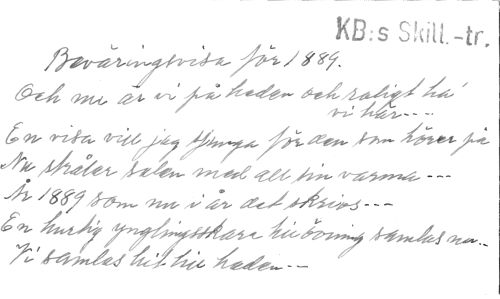 KB:s Skill.-tr.
Beväringsvisa för 1889.
Och nu är vi på heden och roligt ha'
vi här---
En visa vill jag sjunga för den som hörer på
Nu strålar solen med all sin varma ---
År 1889 som nu i år det skrivs ---
En hurtig ynglingsskara till övning samlas nu--
Vi samlas hit till heden --